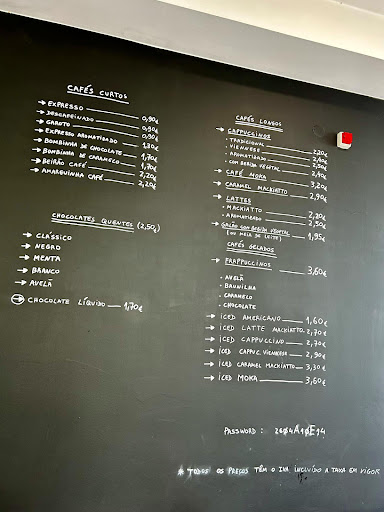 CAFÉS CURTOS
→ EXPRESSO 0,90€
→ DESCAFEINADO 0,90€
→ GAROTO 0,90€
→ EXPRESSO AROMATIZADO 1,30€
→ BOMBINHA DE CHOCOLATE 1,70€
→ BOMBINHA DE CARAMELO 1,70€
→ BEIRÃO CAFÉ 2,20€
→ AMARGUINHA CAFÉ 2,20€
CHOCOLATES QUENTES (2,50€)
→ CLÁSSICO
→ NEGRO
→ MENTA
→ BRANCO
→ AVELÃ
→ CHOCOLATE LÍQUIDO 1,70€
CAFÉS LONGOS
→ CAPPUCCINOS
. TRADICIONAL 2,20€
. VIENNESE 2,40€
. AROMATIZADO 2,50€
. COM BEBIDA VEGETAL 2,40€
→ CAFÉ MOKA 3,20€
→ CARAMEL MACKIATTO 2,90€
→ LATTES
. MACKIATTO 2,20€
. AROMATIZADO 2,50€
→ GALÃO COM BEBIDA VEGETAL 1,95€
(OU MEIA DE LEITE)
CAFÉS GELADOS
→ FRAPPUCCINOS 3,60€
. AVELÃ
. BAUNILHA
. CARAMELO
. CHOCOLATE
→ ICED AMERICANO 1,60€
→ ICED LATTE MACKIATTO 2,70€
→ ICED CAPPUCCINO 2,70€
→ ICED CAPPUC. VIENNESE 2,90€
→ ICED CARAMEL MACKIATTO 3,30€
→ ICED MOKA 3,60€
PASSWORD :
* TODOS OS PREÇOS TÊM O IVA INCLUÍDO A TAXA EM VIGOR